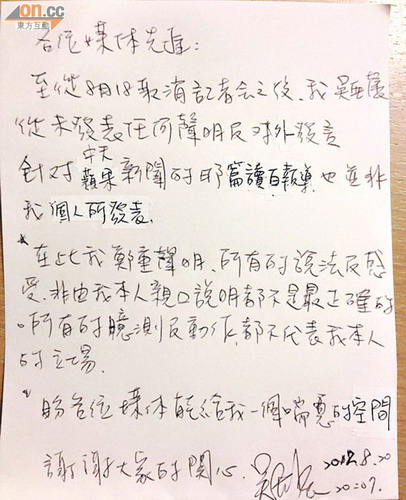 on.cc
東方互動
各位媒体先進：
至從8月18取消記者会之後，我吳亞馨
從未發表任何聲明及对外發言
中天
針对蘋果新聞的那篇讀白報導也並非
我個人所發表．
*在此我鄭重聲明，所有的說法及感
受，非由我本人親口說明都不是最正確的
。所有的臆測及動作，都不代表我本人
的立場．
*盼各位媒体能給我一個喘息的空間
謝謝大家的関心．
2012.8.20
20:07.